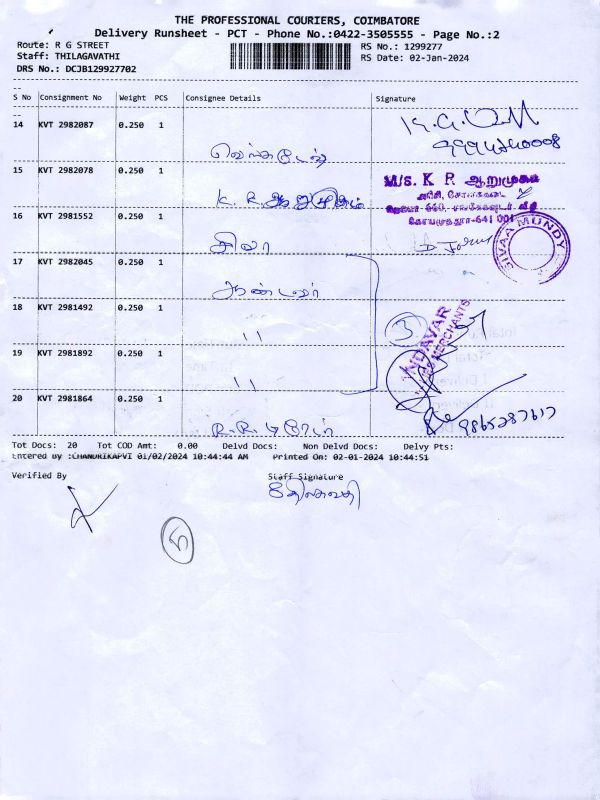 THE PROFESSIONAL COURIERS, COIMBATORE
Delivery Runsheet - PCT - Phone No.:0422-3505555 - Page No.:2
Route: R G STREET
RS No.: 1299277
Staff: THILAGAVATHI
RS Date: 02-Jan-2024
DRS No.: DCJB129927702
S No Consignment No Weight PCS Consignee Details Signature
14 KVT 2982087 0.250 1
15 KVT 2982078 0.250 1
K. R. ஆறுமுகம்
M/S. K R ஆறுமுகம்
கோயமுத்தூர்-641 001
16 KVT 2981552 0.250 1
சிவா
SIVAA MUNDY
17 KVT 2982045 0.250 1
ஆண்டவர்
18 KVT 2981492 0.250 1
11
3
19 KVT 2981892 0.250 1
11
20 KVT 2981864 0.250 1
Tot Docs: 20 Tot COD Amt: 0.00 Delvd Docs: Non Delvd Docs: Delvy Pts:
Entered By :CHANDRIKAPVI 01/02/2024 10:44:44 AM Printed On: 02-01-2024 10:44:51
Verified By Staff Signature
திலகவதி
5